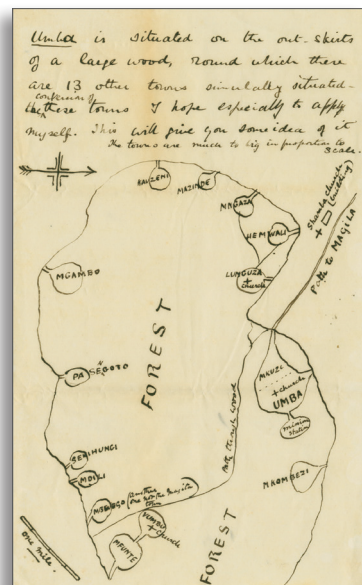 Umba is situated on the out-skirts
of a large wood, round which there
are 13 other towns similarly situated-
these towns I hope especially to apply
myself. This will give you some idea of it
the towns are much to big in proportion to
scale.
BAUZENI
MAZINDE
HEMWALI
LUNGUZA
+ church
Shamba church
+ (building)
Path to MAGILA
MGAMBO
FOREST
PA
SEGOTO
MKUZI
+ church
UMBA
mission
station
Path through wood
MDIKI
MROMBEZI
+ church
MFUNTE
FOREST
one mile.